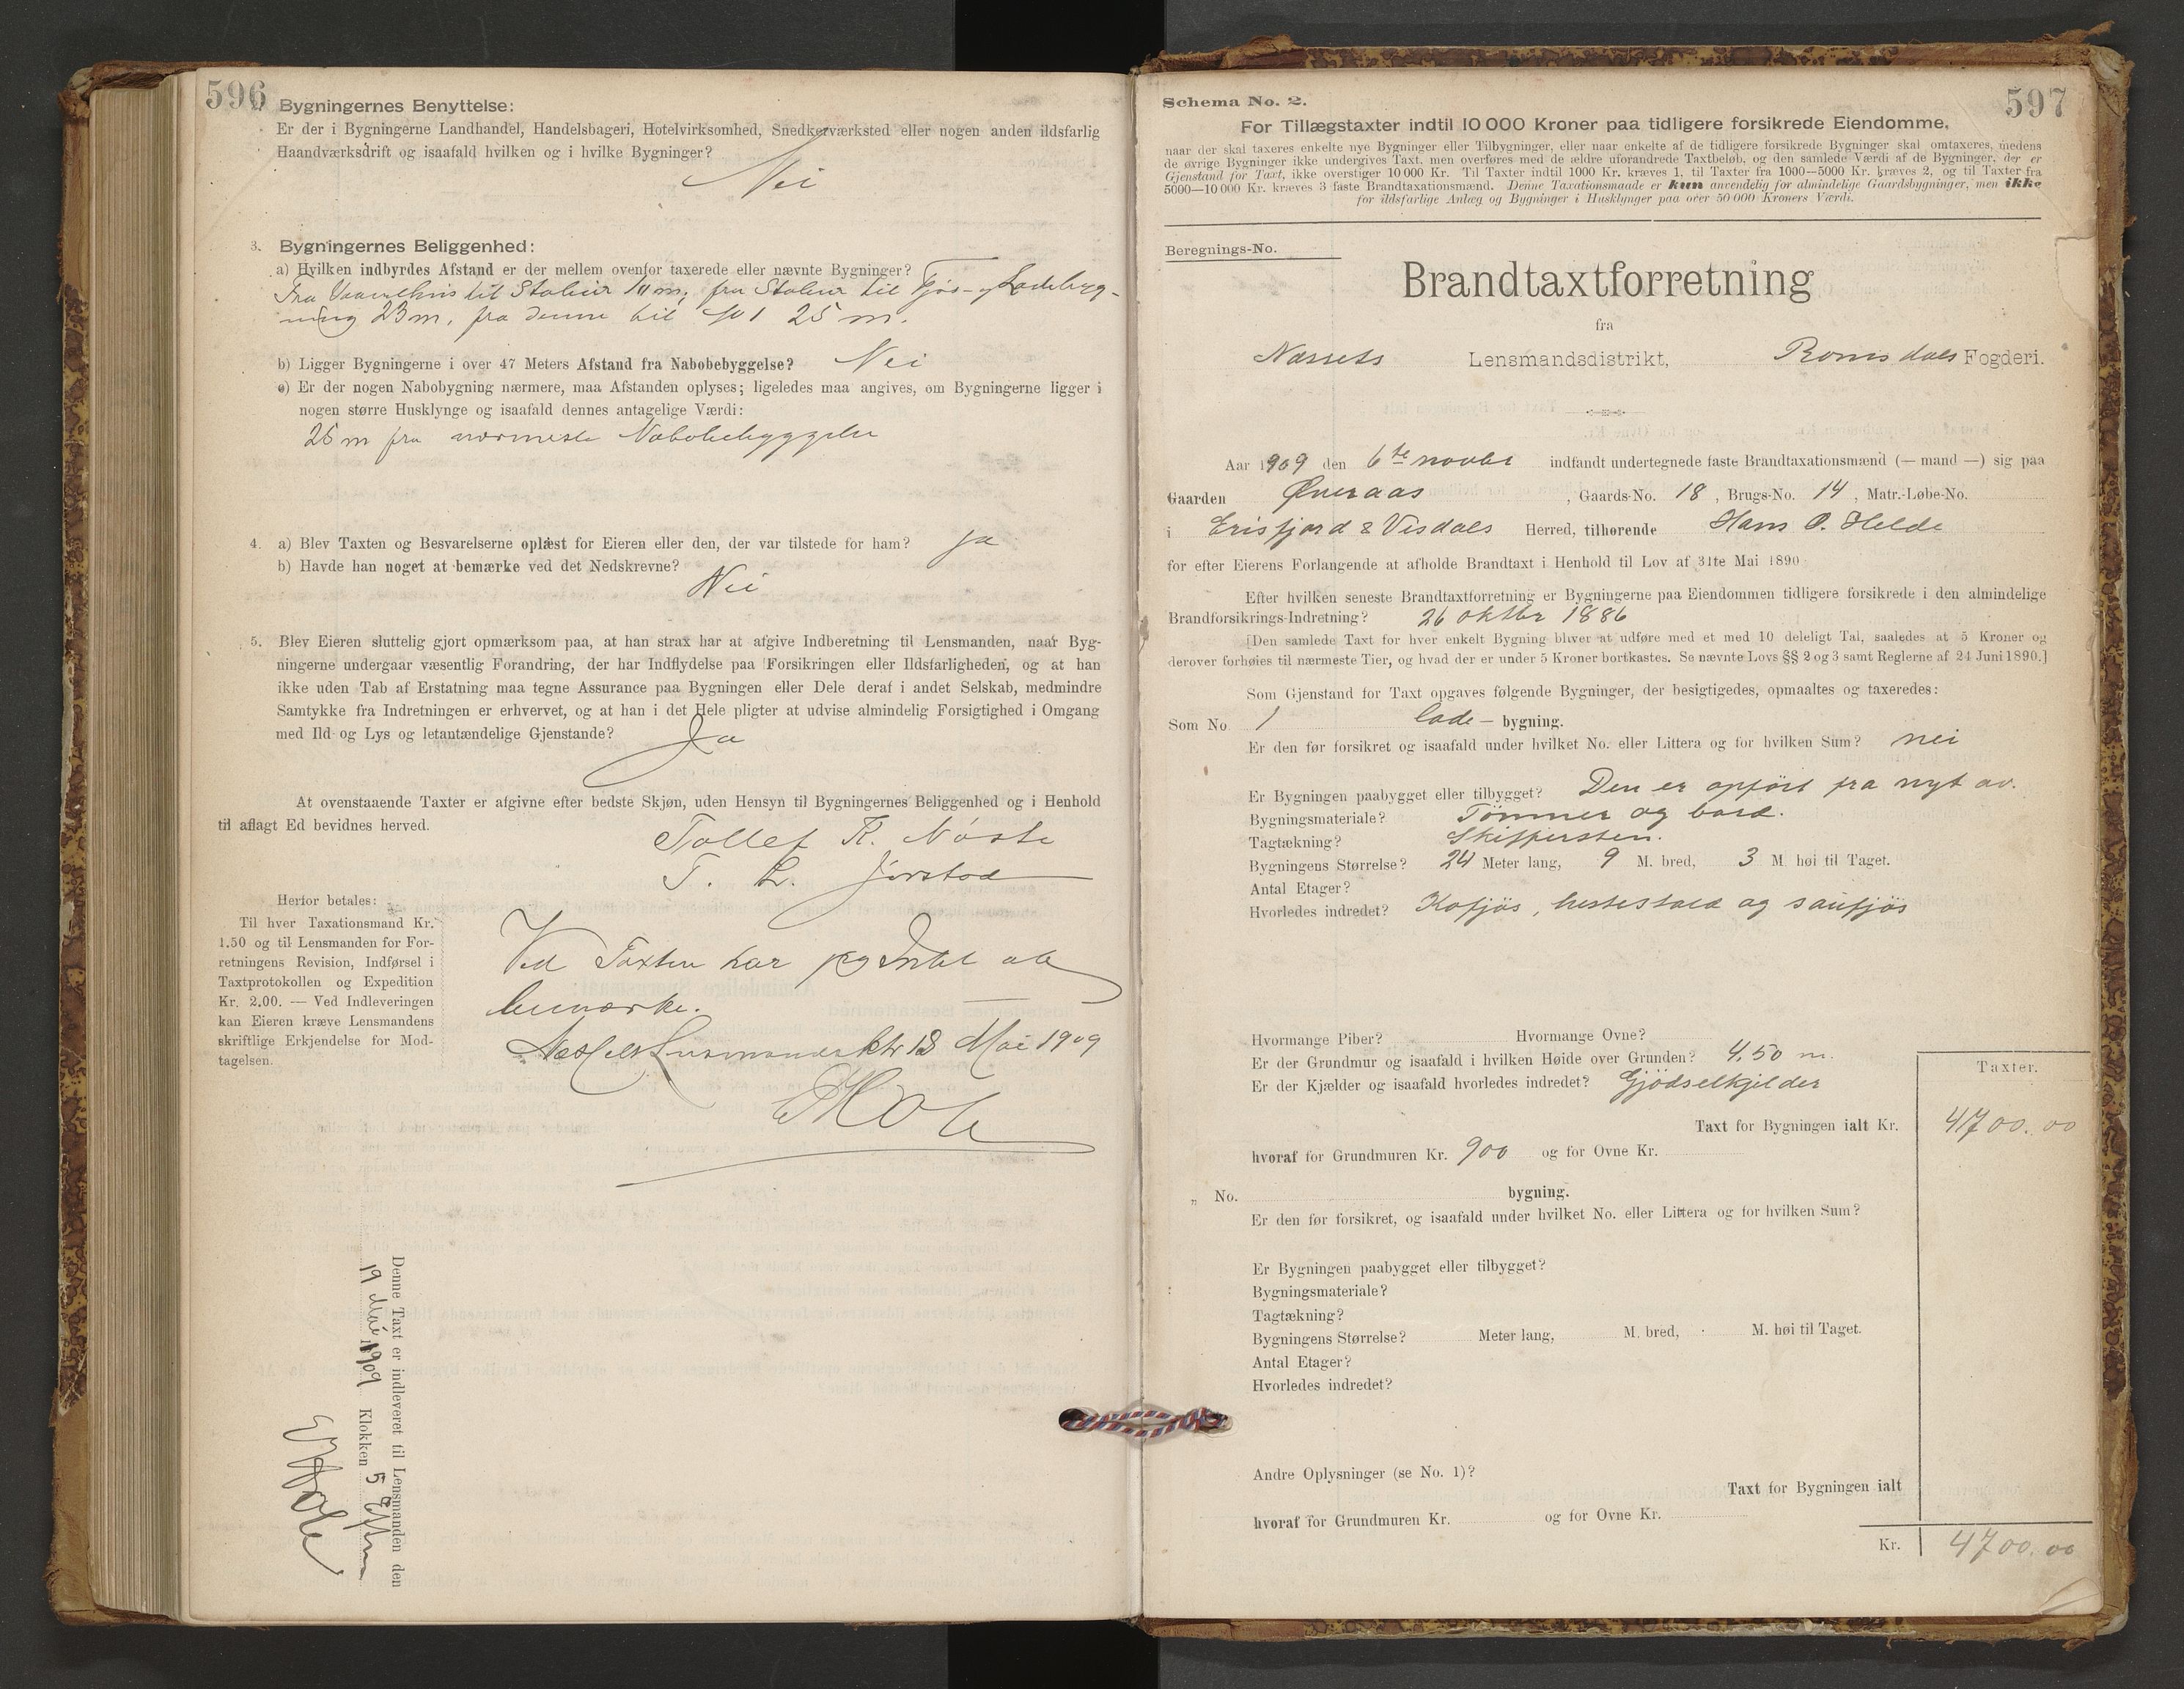 596
Bygningernes Benyttelse:
Er der i Bygningerne Landhandel, Handelsbageri, Hotelvirksomhed, Snedkerværksted eller nogen anden ildsfarlig
Haandværksdrift og isaafald hvilken og i hvilke Bygninger?
Nei
3. Bygningernes Beliggenhed:
a) Hvilken indbyrdes Afstand er der mellem ovenfor taxerede eller nævnte Bygninger?
Fra Vaanehus til Stabur 10 m, fra Stabur til Fjøs- og Ladebyg-
ning 23 m, fra denne til No 1 25 m.
b) Ligger Bygningerne i over 47 Meters Afstand fra Nabobebyggelse? Nei
c) Er der nogen Nabobygning nærmere, maa Afstanden oplyses; ligeledes maa angives, om Bygningerne ligger i
nogen større Husklynge og isaafald dennes antagelige Værdi:
25 m fra nærmeste Nabobebyggelse
4. a) Blev Taxten og Besvarelserne oplæst for Eieren eller den, der var tilstede for ham? ja
b) Havde han noget at bemærke ved det Nedskrevne?
Nei
5. Blev Eieren sluttelig gjort opmærksom paa, at han strax har at afgive Indberetning til Lensmanden, naar Byg-
ningerne undergaar væsentlig Forandring, der har Indflydelse paa Forsikringen eller Ildsfarligheden, og at han
ikke uden Tab af Erstatning maa tegne Assurance paa Bygningen eller Dele deraf i andet Selskab, medmindre
Samtykke fra Indretningen er erhvervet, og at han i det Hele pligter at udvise almindelig Forsigtighed i Omgang
med Ild og Lys og letantændelige Gjenstande?
Ja
At ovenstaaende Taxter er afgivne efter bedste Skjøn, uden Hensyn til Bygningernes Beliggenhed og i Henhold
til aflagt Ed bevidnes herved.
Tollef K. Nøste
T. L. Jørstad
Herfor betales:
Til hver Taxationsmand Kr.
1.50 og til Lensmanden for For-
retningens Revision, Indførsel i
Taxtprotokollen og Expedition
Kr. 2.00. — Ved Indleveringen
kan Eieren kræve Lensmandens
skriftlige Erkjendelse for Mod-
tagelsen.
Ved Taxten har jeg Intet at
bemærke.
18 Mai 1909
Denne Taxt er indleveret til Lensmanden den
19 Mai 1909 Klokken 5 Eftm
597
Schema No. 2.
For Tillægstaxter indtil 10 000 Kroner paa tidligere forsikrede Eiendomme,
naar der skal taxeres enkelte nye Bygninger eller Tilbygninger, eller naar enkelte af de tidligere forsikrede Bygninger skal omtaxeres, medens
de øvrige Bygninger ikke undergives Taxt, men overføres med de ældre uforandrede Taxtbeløb, og den samlede Værdi af de Bygninger, der er
Gjenstand for Taxt, ikke overstiger 10 000 Kr. Til Taxter indtil 1000 Kr. kræves 1, til Taxter fra 1000—5000 Kr. kræves 2, og til Taxter fra
5000—10 000 Kr. kræves 3 faste Brandtaxationsmænd. Denne Taxationsmaade er kun anvendelig for almindelige Gaardsbygninger, men ikke
for ildsfarlige Anlæg og Bygninger i Husklynger paa over 50 000 Kroners Værdi.
Beregnings-No.
Brandtaxtforretning
fra
Næssets Lensmandsdistrikt, Romsdals Fogderi.
Aar 1909 den 6te novbr indfandt undertegnede faste Brandtaxationsmænd (— mand —) sig paa
Gaarden Øveraas, Gaards-No. 18, Brugs-No. 14, Matr.-Løbe-No.
i Erisfjord & Visdals Herred, tilhørende Hans O. Helde
for efter Eierens Forlangende at afholde Brandtaxt i Henhold til Lov af 31te Mai 1890
Efter hvilken seneste Brandtaxtforretning er Bygningerne paa Eiendommen tidligere forsikrede i den almindelige
Brandforsikrings-Indretning? 26 oktbr 1886
[Den samlede Taxt for hver enkelt Bygning bliver at udføre med et med 10 deleligt Tal, saaledes at 5 Kroner og
derover forhøies til nærmeste Tier, og hvad der er under 5 Kroner bortkastes. Se nævnte Lovs §§ 2 og 3 samt Reglerne af 24 Juni 1890.]
Som Gjenstand for Taxt opgaves følgende Bygninger, der besigtigedes, opmaaltes og taxeredes:
Som No 1 lade — bygning.
Er den før forsikret og isaafald under hvilket No. eller Littera og for hvilken Sum? nei
Er Bygningen paabygget eller tilbygget? Den er opført fra nyt av.
Bygningsmateriale? Tømmer og bord.
Tagtækning? Skiffersten.
Bygningens Størrelse? 24 Meter lang, 9 M. bred, 3 M. høi til Taget.
Antal Etager?
Hvorledes indredet? Kofjøs, hestestald og saufjøs
Hvormange Piber? Hvormange Ovne?
Er der Grundmur og isaafald i hvilken Høide over Grunden? 4.50 m.
Er der Kjælder og isaafald hvorledes indredet? Gjødselkjelder
Taxter.
Taxt for Bygningen ialt Kr. 4700.00
hvoraf for Grundmuren Kr. 900 og for Ovne Kr.
„ No. bygning.
Er den før forsikret, og isaafald under hvilket No. eller Littera og for hvilken Sum?
Er Bygningen paabygget eller tilbygget?
Bygningsmateriale?
Tagtækning?
Bygningens Størrelse? Meter lang, M. bred, M. høi til Taget.
Antal Etager?
Hvorledes indredet?
Andre Oplysninger (se No. 1)?
Taxt for Bygningen ialt
hvoraf for Grundmuren Kr. og for Ovne Kr.
Kr. 4700.00